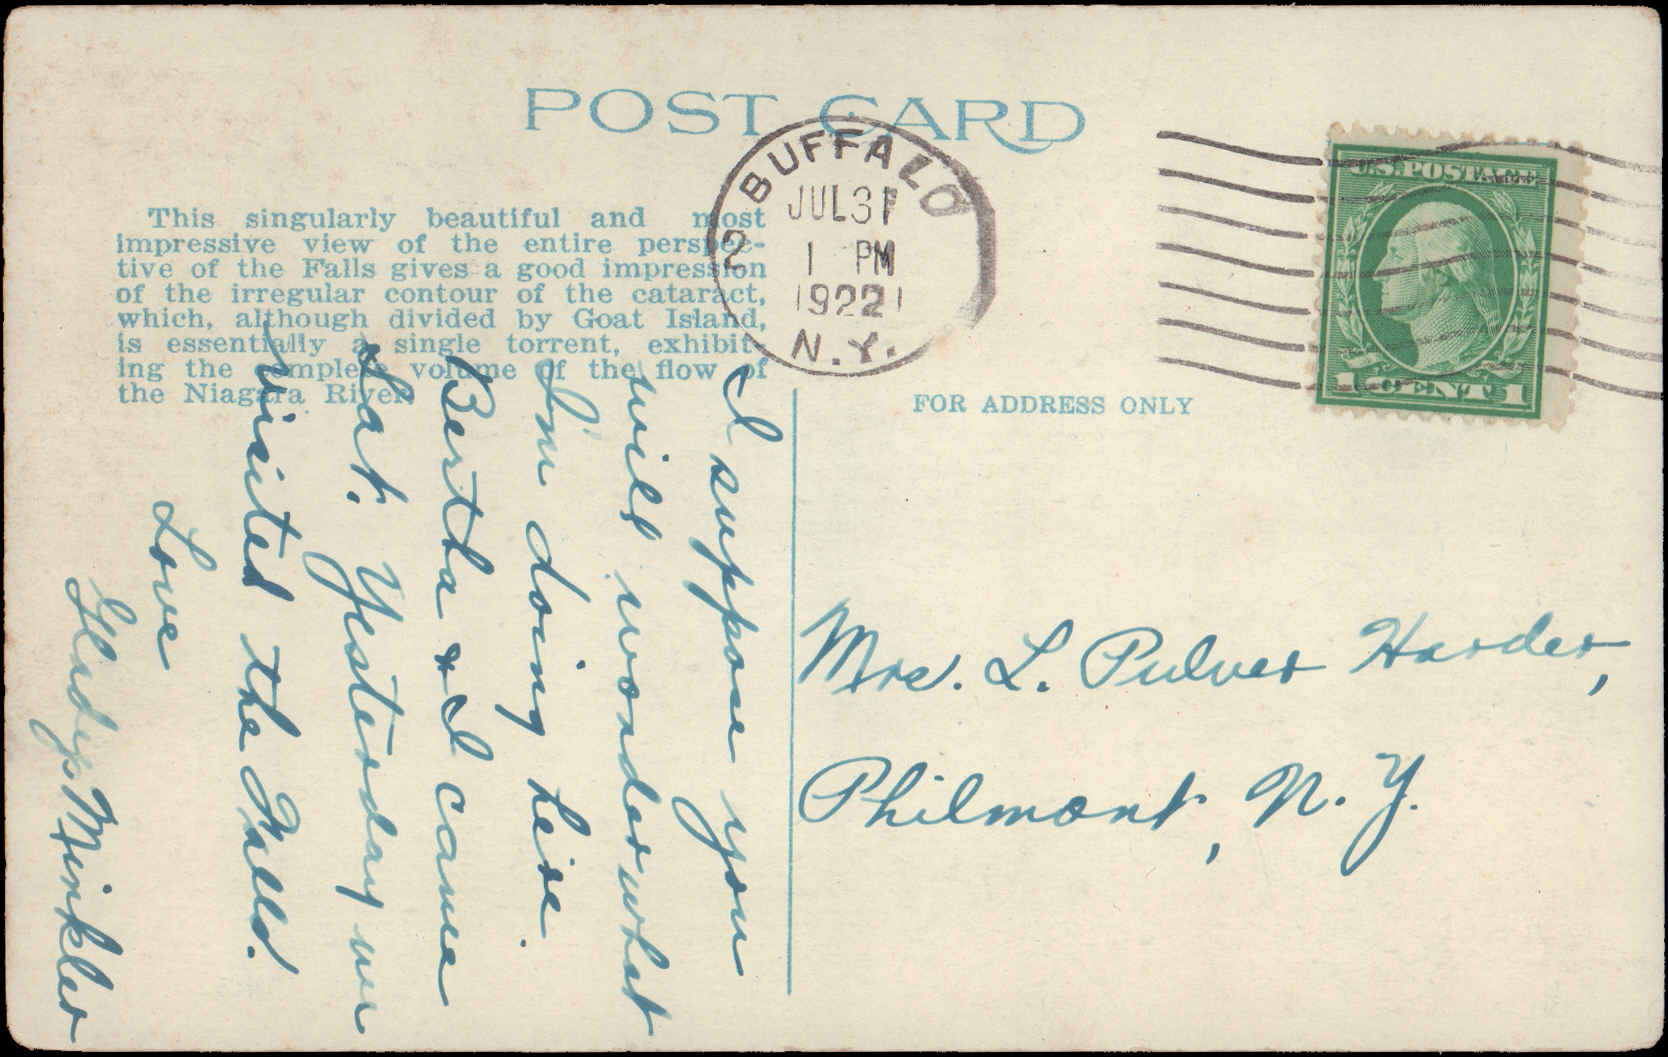 POST CARD
This singularly beautiful and most
impressive view of the entire perspec-
tive of the Falls gives a good impression
of the irregular contour of the cataract,
which, although divided by Goat Island,
is essentially a single torrent, exhibit-
ing the complete volume of the flow of
the Niagara River.
BUFFALO
2
JUL 31
1 PM
1922
N.Y.
U.S. POSTAGE
1 CENT 1
FOR ADDRESS ONLY
I suppose you
will wonder what
I'm doing here.
Bertha & I came
Sat. Yesterday we
visited the Falls.
Love
Gladys Minkler
Mrs. L. Pulver Harder,
Philmont, N. Y.